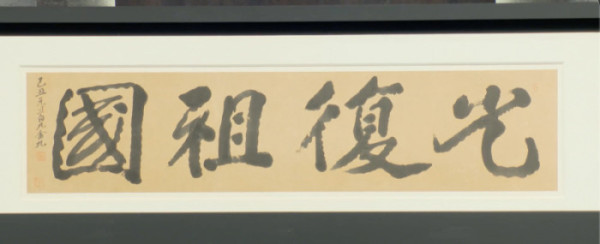 光復祖國